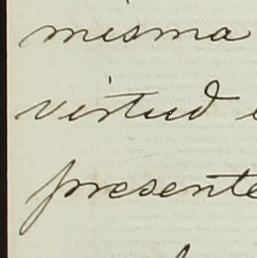 misma
virtud
presente